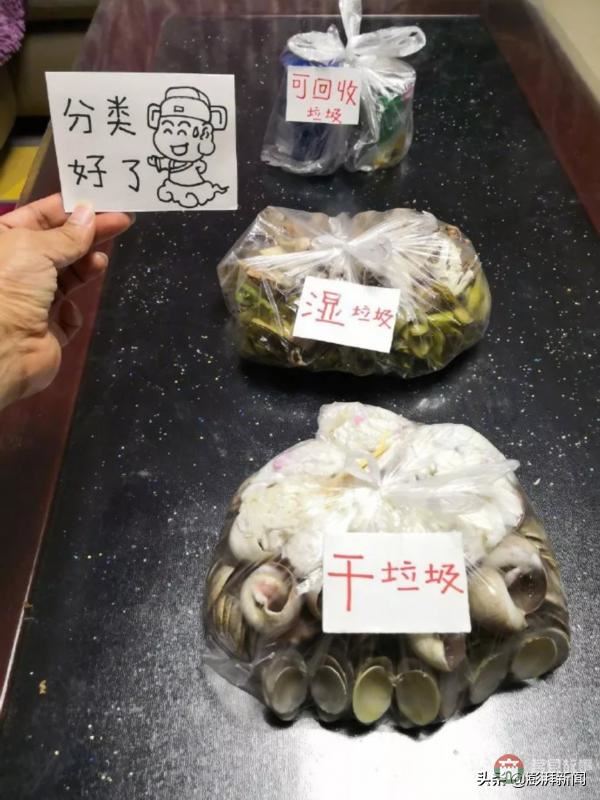 分类
好了
可回收
垃圾
湿垃圾
干垃圾
头条@澎湃新闻